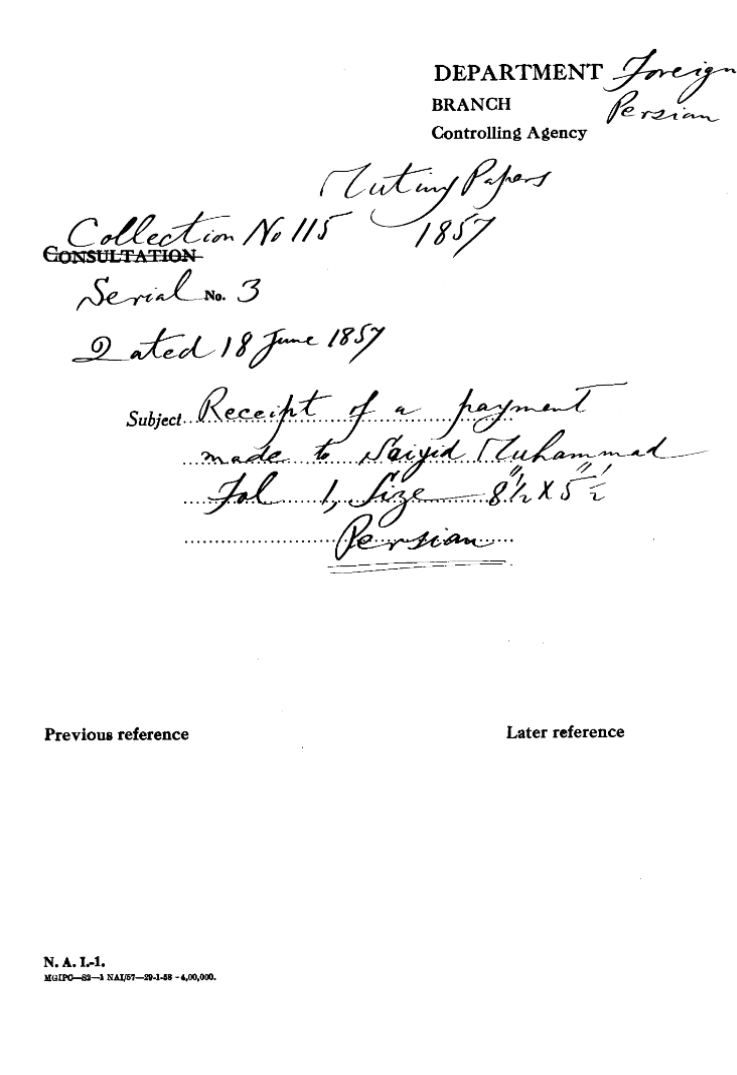 DEPARTMENT Foreign
BRANCH Persian
Controlling Agency
Mutiny Papers
Collection No 115 1857
CONSULTATION
Serial No. 3
Dated 18 June 1857
Subject Receipt of a payment
made to Saiyid Muhammad
Fol 1, Size 8½" X 5½"
Persian
Previous reference Later reference
N. A. I.-1.
MGIPC—S2—1 NAI/57—29-1-58 -4,00,000.